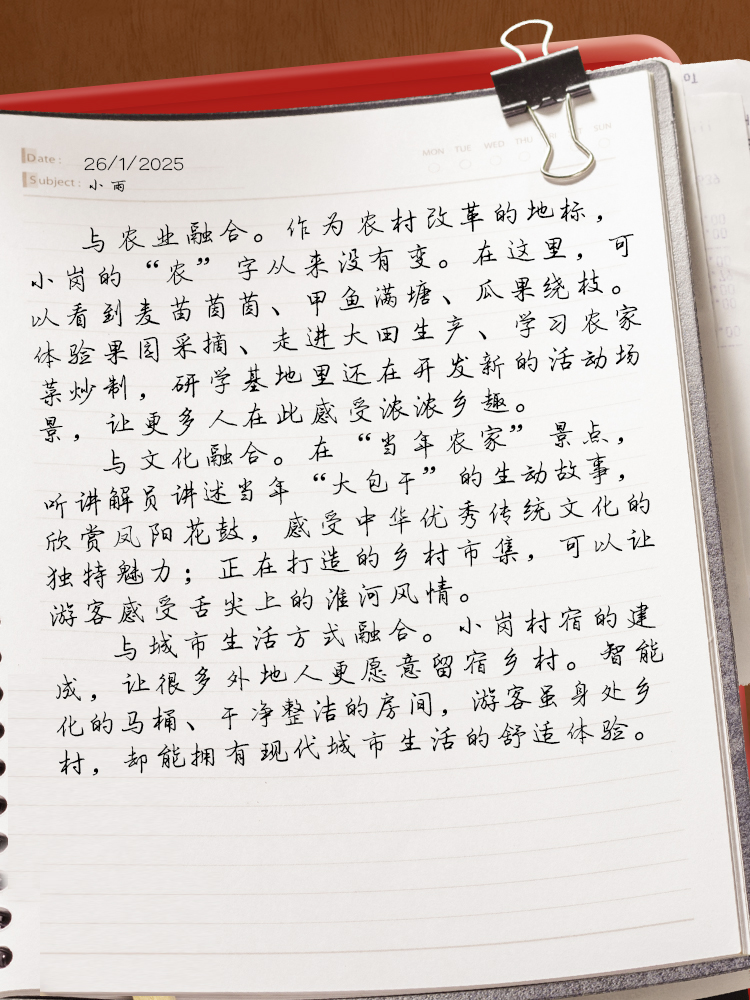 To
Date : 26/1/2025
MON TUE WED THU SUN
Subject : 小雨
与农业融合。作为农村改革的地标，
小岗的“农”字从来没有变。在这里，可
以看到麦苗茵茵、甲鱼满塘、瓜果绕枝。
体验果园采摘、走进大田生产、学习农家
菜炒制，研学基地里还在开发新的活动场
景，让更多人在此感受浓浓乡趣。
与文化融合。在“当年农家”景点，
听讲解员讲述当年“大包干”的生动故事，
欣赏凤阳花鼓，感受中华优秀传统文化的
独特魅力；正在打造的乡村市集，可以让
游客感受舌尖上的淮河风情。
与城市生活方式融合。小岗村宿的建
成，让很多外地人更愿意留宿乡村。智能
化的马桶、干净整洁的房间，游客虽身处乡
村，却能拥有现代城市生活的舒适体验。